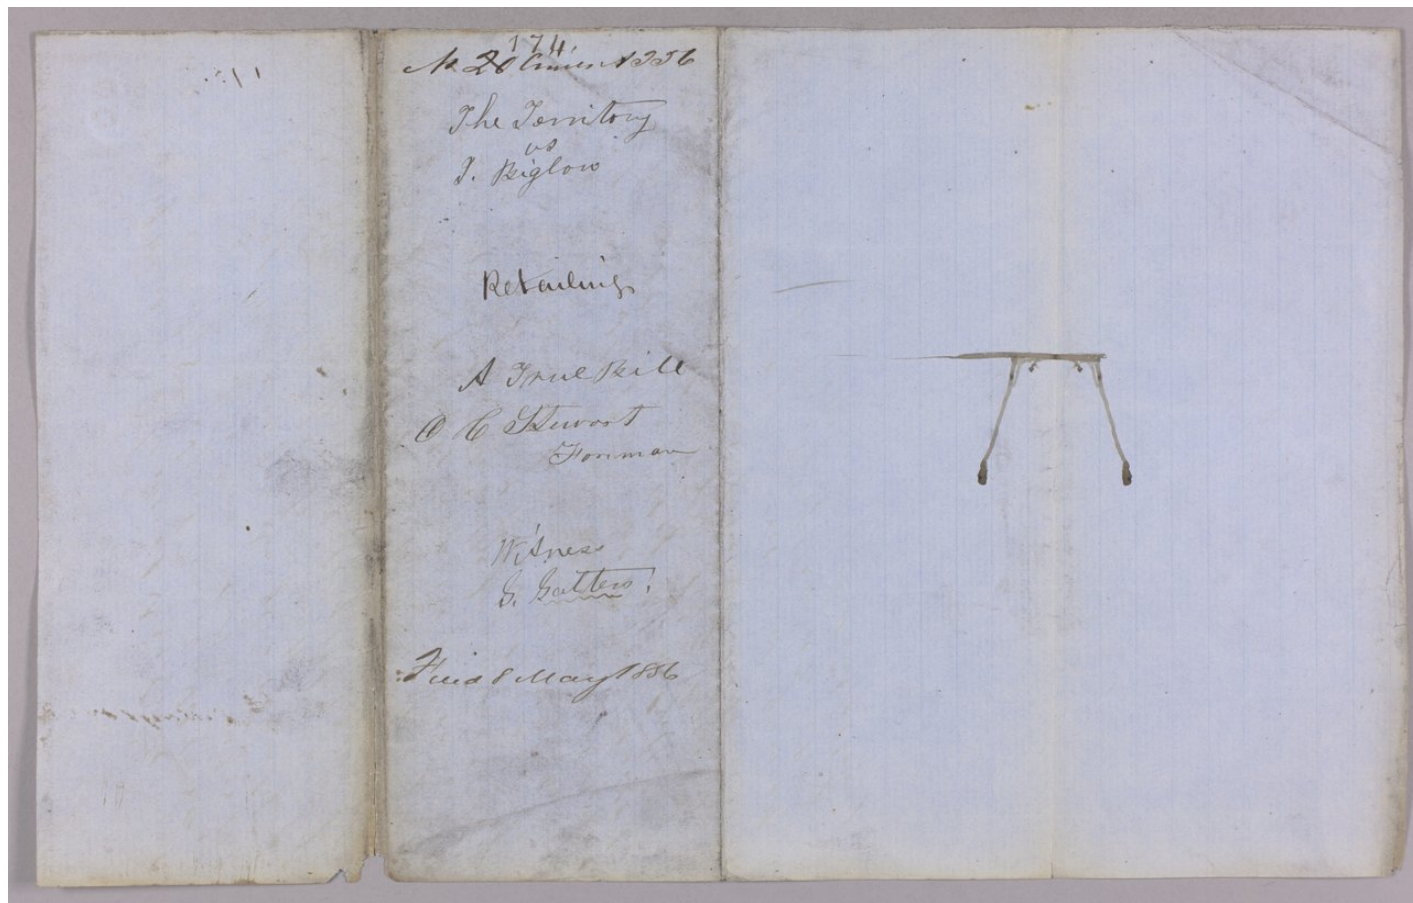 174.
No 20 1856
The Territory
vs
T. Biglow
Retailing
A True Bill
O C Stewort
Forman
Witness
G. Gatters.
Filed 8 May 1856